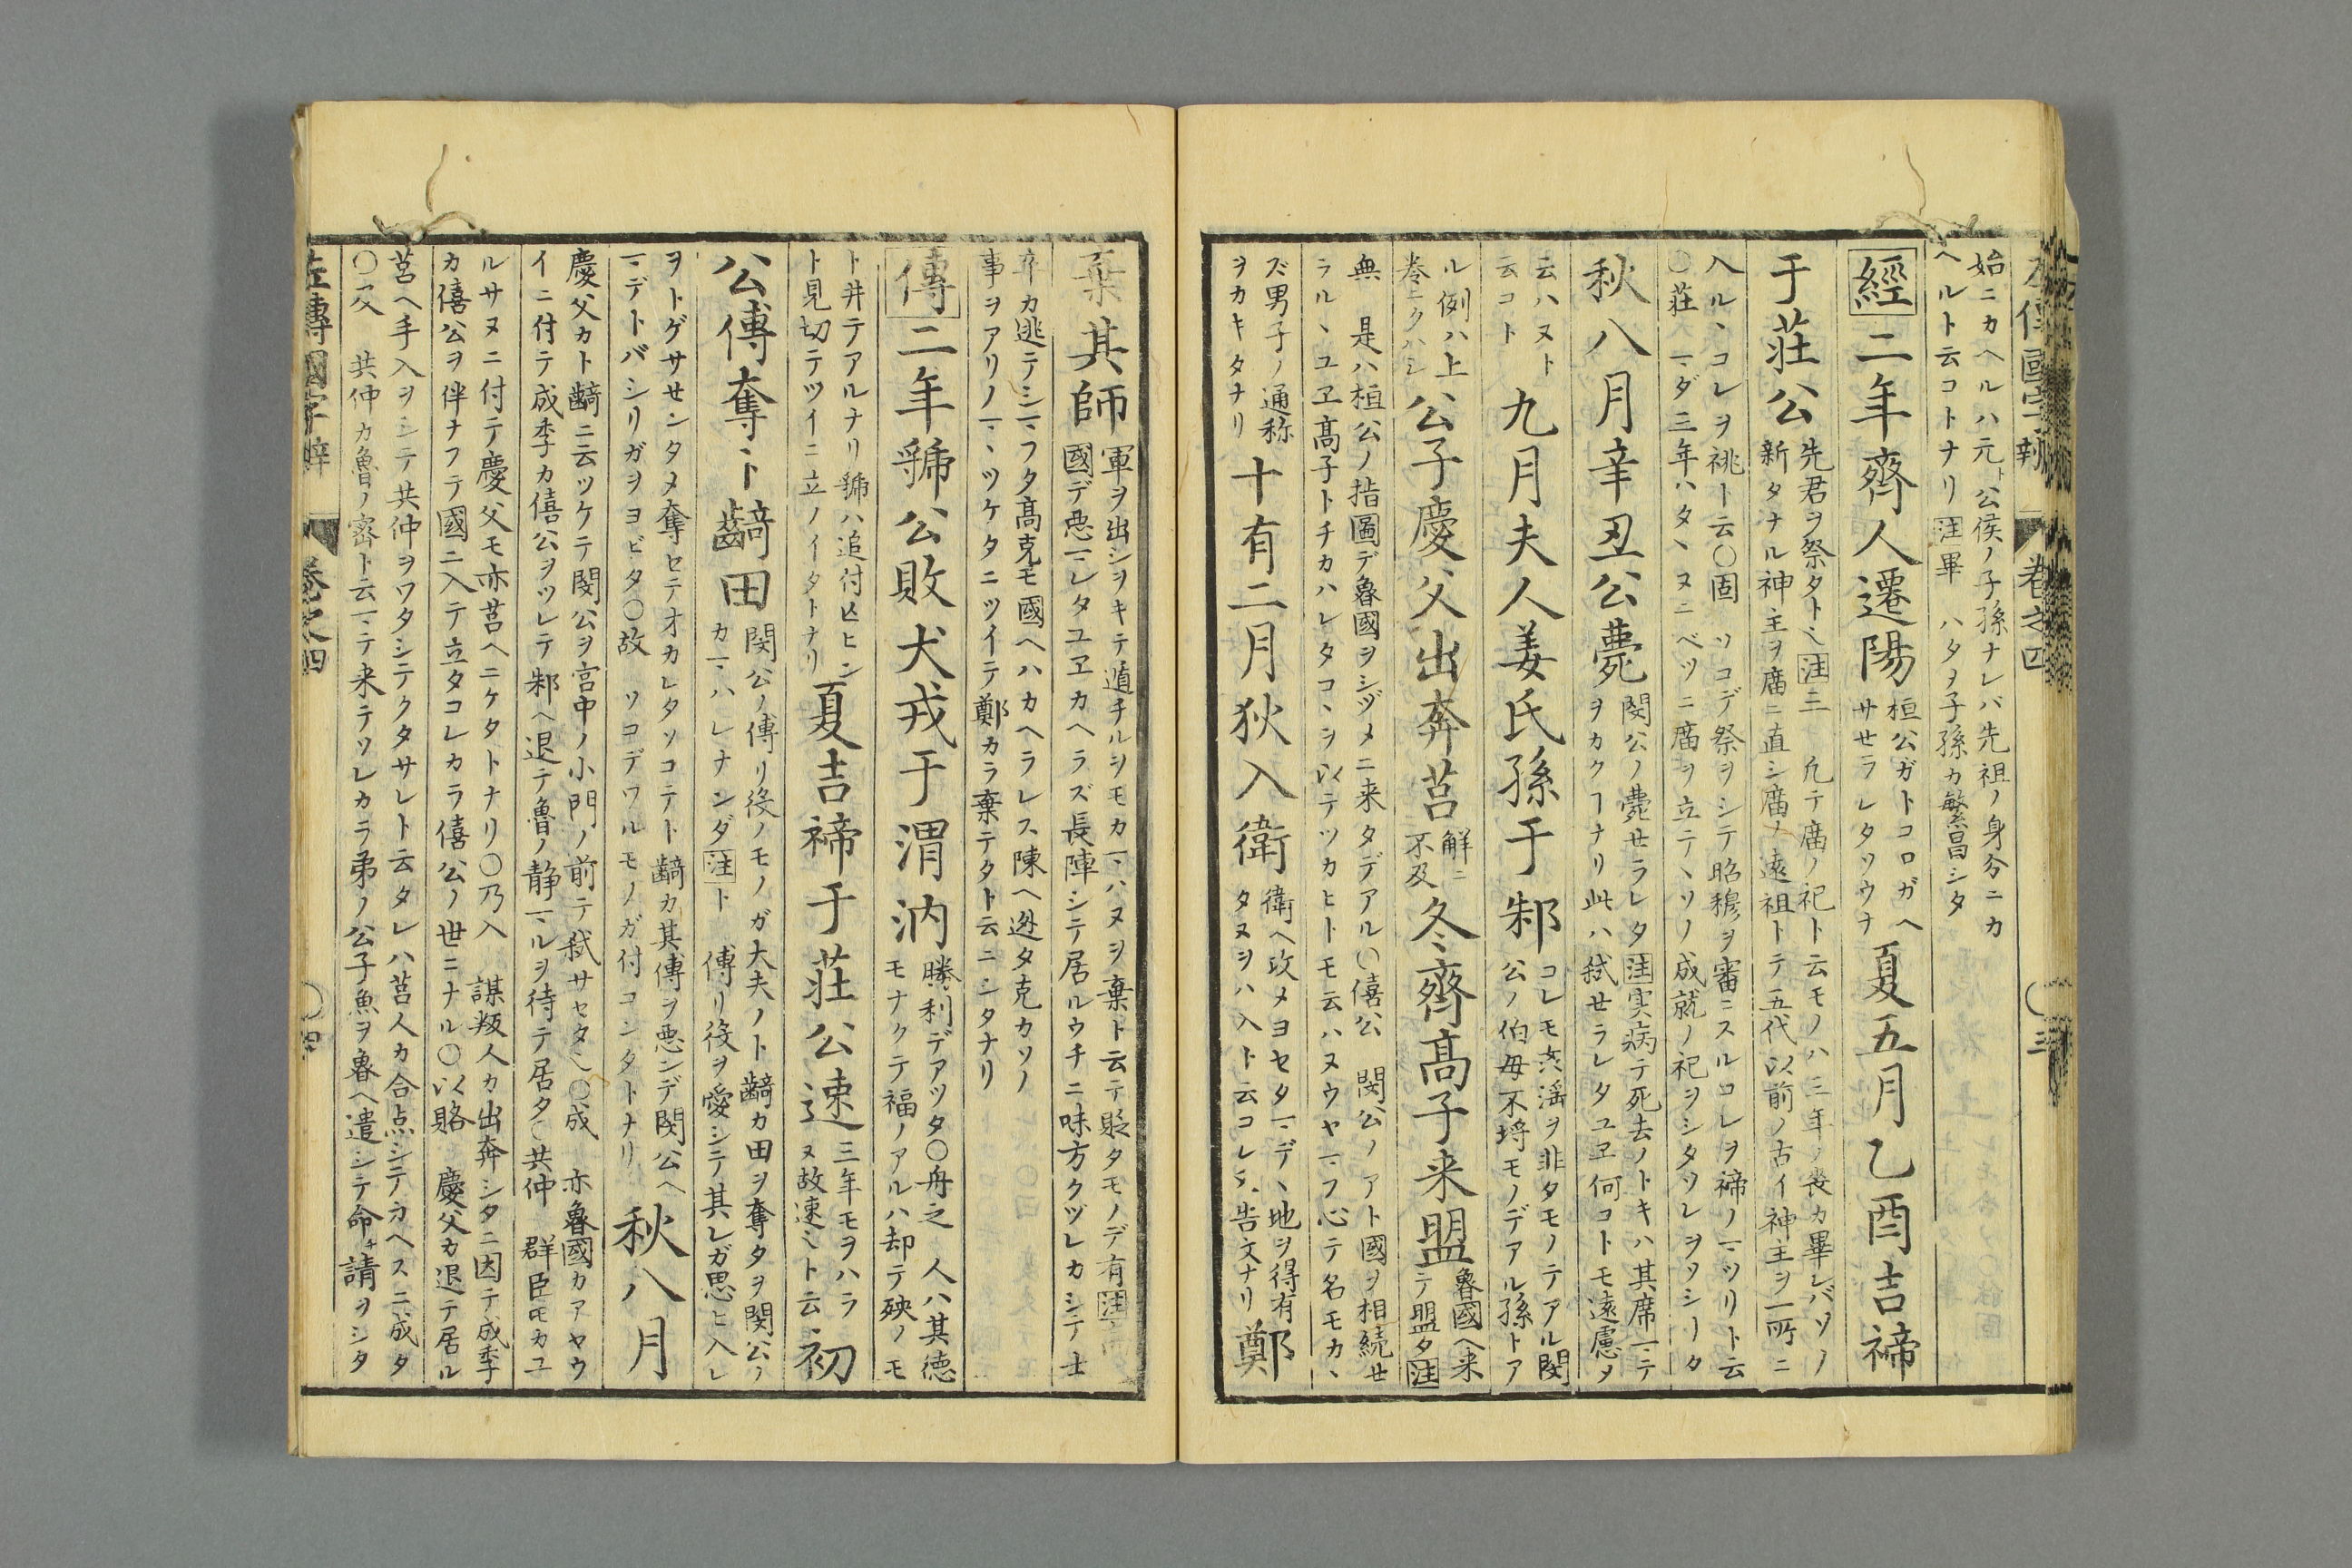 左傳國字辨 卷之四 〇三
始ニカヘルハ元ト公侯ノ子孫ナレバ先祖ノ身分ニカ
ヘルト云コトナリ注畢 ハタヲ子孫カ繁昌シタ
經二年齊人遷陽
桓公ガトコロガヘ
サセラレタソウナ
夏五月乙酉吉禘
于莊公
先君ヲ祭タト〻注三 凢テ廟ノ祀ト云モノハ三年ノ喪カ畢レバソノ
新タナル神主ヲ廟ニ直シ廟ノ遠祖トテ五代以前ノ古イ神主ヲ一所ニ
入ル、コレヲ祧ト云〇固 ソコデ祭ヲシテ昭穆ヲ審ニスルコレヲ禘ノヿツリト云
〇莊 ヿダ三年ハタヽヌニベツニ廟ヲ立テヽソノ成就ノ祀ヲシタソレヲソシータ
秋八月辛丑公薨
閔公ノ薨セラレタ注実病テ死去ノトキハ其席ヿテ
ヲカクヿナリ此ハ弑せラレタユヱ何コトモ遠慮メ
云ハヌト
云コト
九月夫人姜氏孫于邾
コレモ淫ヲ非タモノテアル閔
公ノ伯母不埒モノデアル孫トア
ル例ハ上
巻ニクハシ
公子慶父出奔莒
解ニ
不及
冬齊髙子来盟
魯國ヘ来
テ盟タ注
無 是ハ桓公ノ指圖デ魯國ヲシヅメニ来タデアル〇僖公 閔公ノアト國ヲ相続せ
ラル、ユヱ髙子トチカハレタコヽヲ以テツカヒトモ云ハヌウヤヿフ心テ名モカヽ
ズ男子ノ通称
ヲカキタナリ
十有二月狄入衛
衛ヘ攻メヨセタヿデ、地ヲ得有
タヌヲハ入ト云コレ告文ナリ
鄭
棄其師
軍ヲ出シヲキテ遁チルシモカヿハヌヲ棄ト云テ貶タモノデ有注
國デ悪ヿレタユヱカヘラズ長陣シテ居ルウチニ味方クヅレカシテ士
卒カ逃テシヿフタ髙克モ國ヘハカヘラレス陳ヘ迯タ克カソノ
事ヲアリノヿヽツケタニツイテ鄭カラ棄テタト云ニシタナリ
傳二年虢公敗犬戎于渭汭
勝利デアツタ〇舟之 人ハ其徳
モナクテ福ノアルハ却テ殃ノモ
ト井テアルナリ虢ハ追付亡ヒン
ト見切テツイニ立ノイタトナリ
夏吉禘于荘公速
三年モヲハラ
ヌ故速〻ト云
初
公傅奪卜齮田
閔公ノ傅リ役ノモノガ大夫ノト齮カ田ヲ奪タヲ閔公ノ
カヿハレナンダ注ト 傅リ役ヲ愛シテ其レガ思ヒ入レ
ヲトゲサせンタメ奪セテオカレタソコテト齮カ其傅ヲ悪ンデ閔公ヘ
ヿデトバシリガヲヨビタ〇故 ソコデワルモノガ付コンタトナリ
秋八月
慶父カト齮ニ云ツケテ閔公ヲ宮中ノ小門ノ前テ弑サセタ〻〇成 亦魯國カアヤウ
イニ付テ成季カ僖公ヲツレテ邾ヘ退テ魯ノ静ヿルヲ待テ居タ〇共仲 群臣モカユ
ルサヌニ付テ慶父モ亦莒ヘニケタトナリ〇乃入 謀叛人カ出奔シタニ因テ成季
カ僖公ヲ伴ナフテ國ニ入テ立タコレカラ僖公ノ世ニナル〇以賂 慶父カ退テ居ル
莒ヘ手入ヲシテ共仲ヲワタシテクタサレト云タレハ莒人カ合点シテカヘスニ成タ
〇及 共仲カ魯ノ密ト云ヿテ来テソレカラ弟ノ公子魚ヲ魯ヘ遣シテ命ヲ請ヲシタ
左傳國字辨 卷之四 〇四